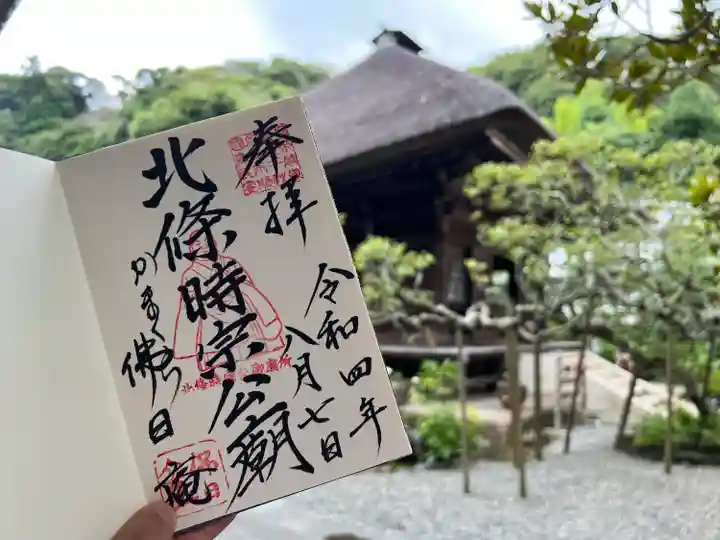 奉拝
令和四年
八月七日
北條時宗公廟
かまくら
佛日庵
北條時宗公御廟所